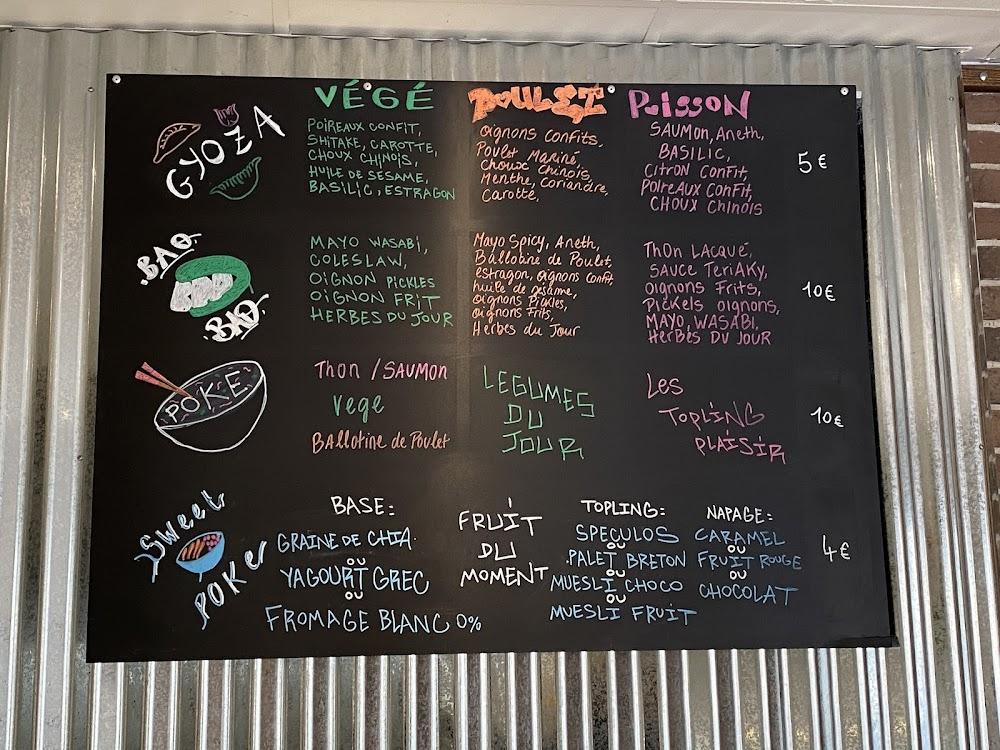 GYOZA
VÉGÉ
POIREAUX CONFIT,
SHITAKE, CAROTTE,
CHOUX CHINOIS,
HUILE DE SESAME,
BASILIC, ESTRAGON
POULET
Oignons Confits,
Poulet Mariné,
Choux Chinois,
Menthe, Coriandre,
Carotte,
POISSON
SAUMON, Aneth,
BASILIC,
Citron Confit,
Poireaux Confit,
CHOUX Chinois
5€
BAO
BAO
MAYO WASABI,
COLESLAW,
OIGNON PICKLES
OIGNON FRIT
HERBES DU JOUR
Mayo Spicy, Aneth,
Ballotine de Poulet,
estragon, oignons confit,
huile de sésame,
oignons Pickles,
oignons Frits,
Herbes du Jour
Thon Lacqué,
SAUCE TeriAKy,
oignons Frits,
Pickels oignons,
MAYO, WASABI,
HerBes DU JOUR
10€
POKE
Thon / SAUMON
Vege
BAllotine de Poulet
LEGUMES
DU
JOUR
Les
TOPLING
PLAISIR
10€
Sweet
POKer
BASE:
GRAINE DE CHIA
OU
YAGOURT GREC
OU
FROMAGE BLANC 0%
FRUIT
DU
MOMENT
TOPLING:
SPECULOS
OU
PALET BRETON
OU
MUESLI CHOCO
OU
MUESLI FRUIT
NAPAGE:
CARAMEL
OU
FRUIT ROUGE
OU
CHOCOLAT
4€